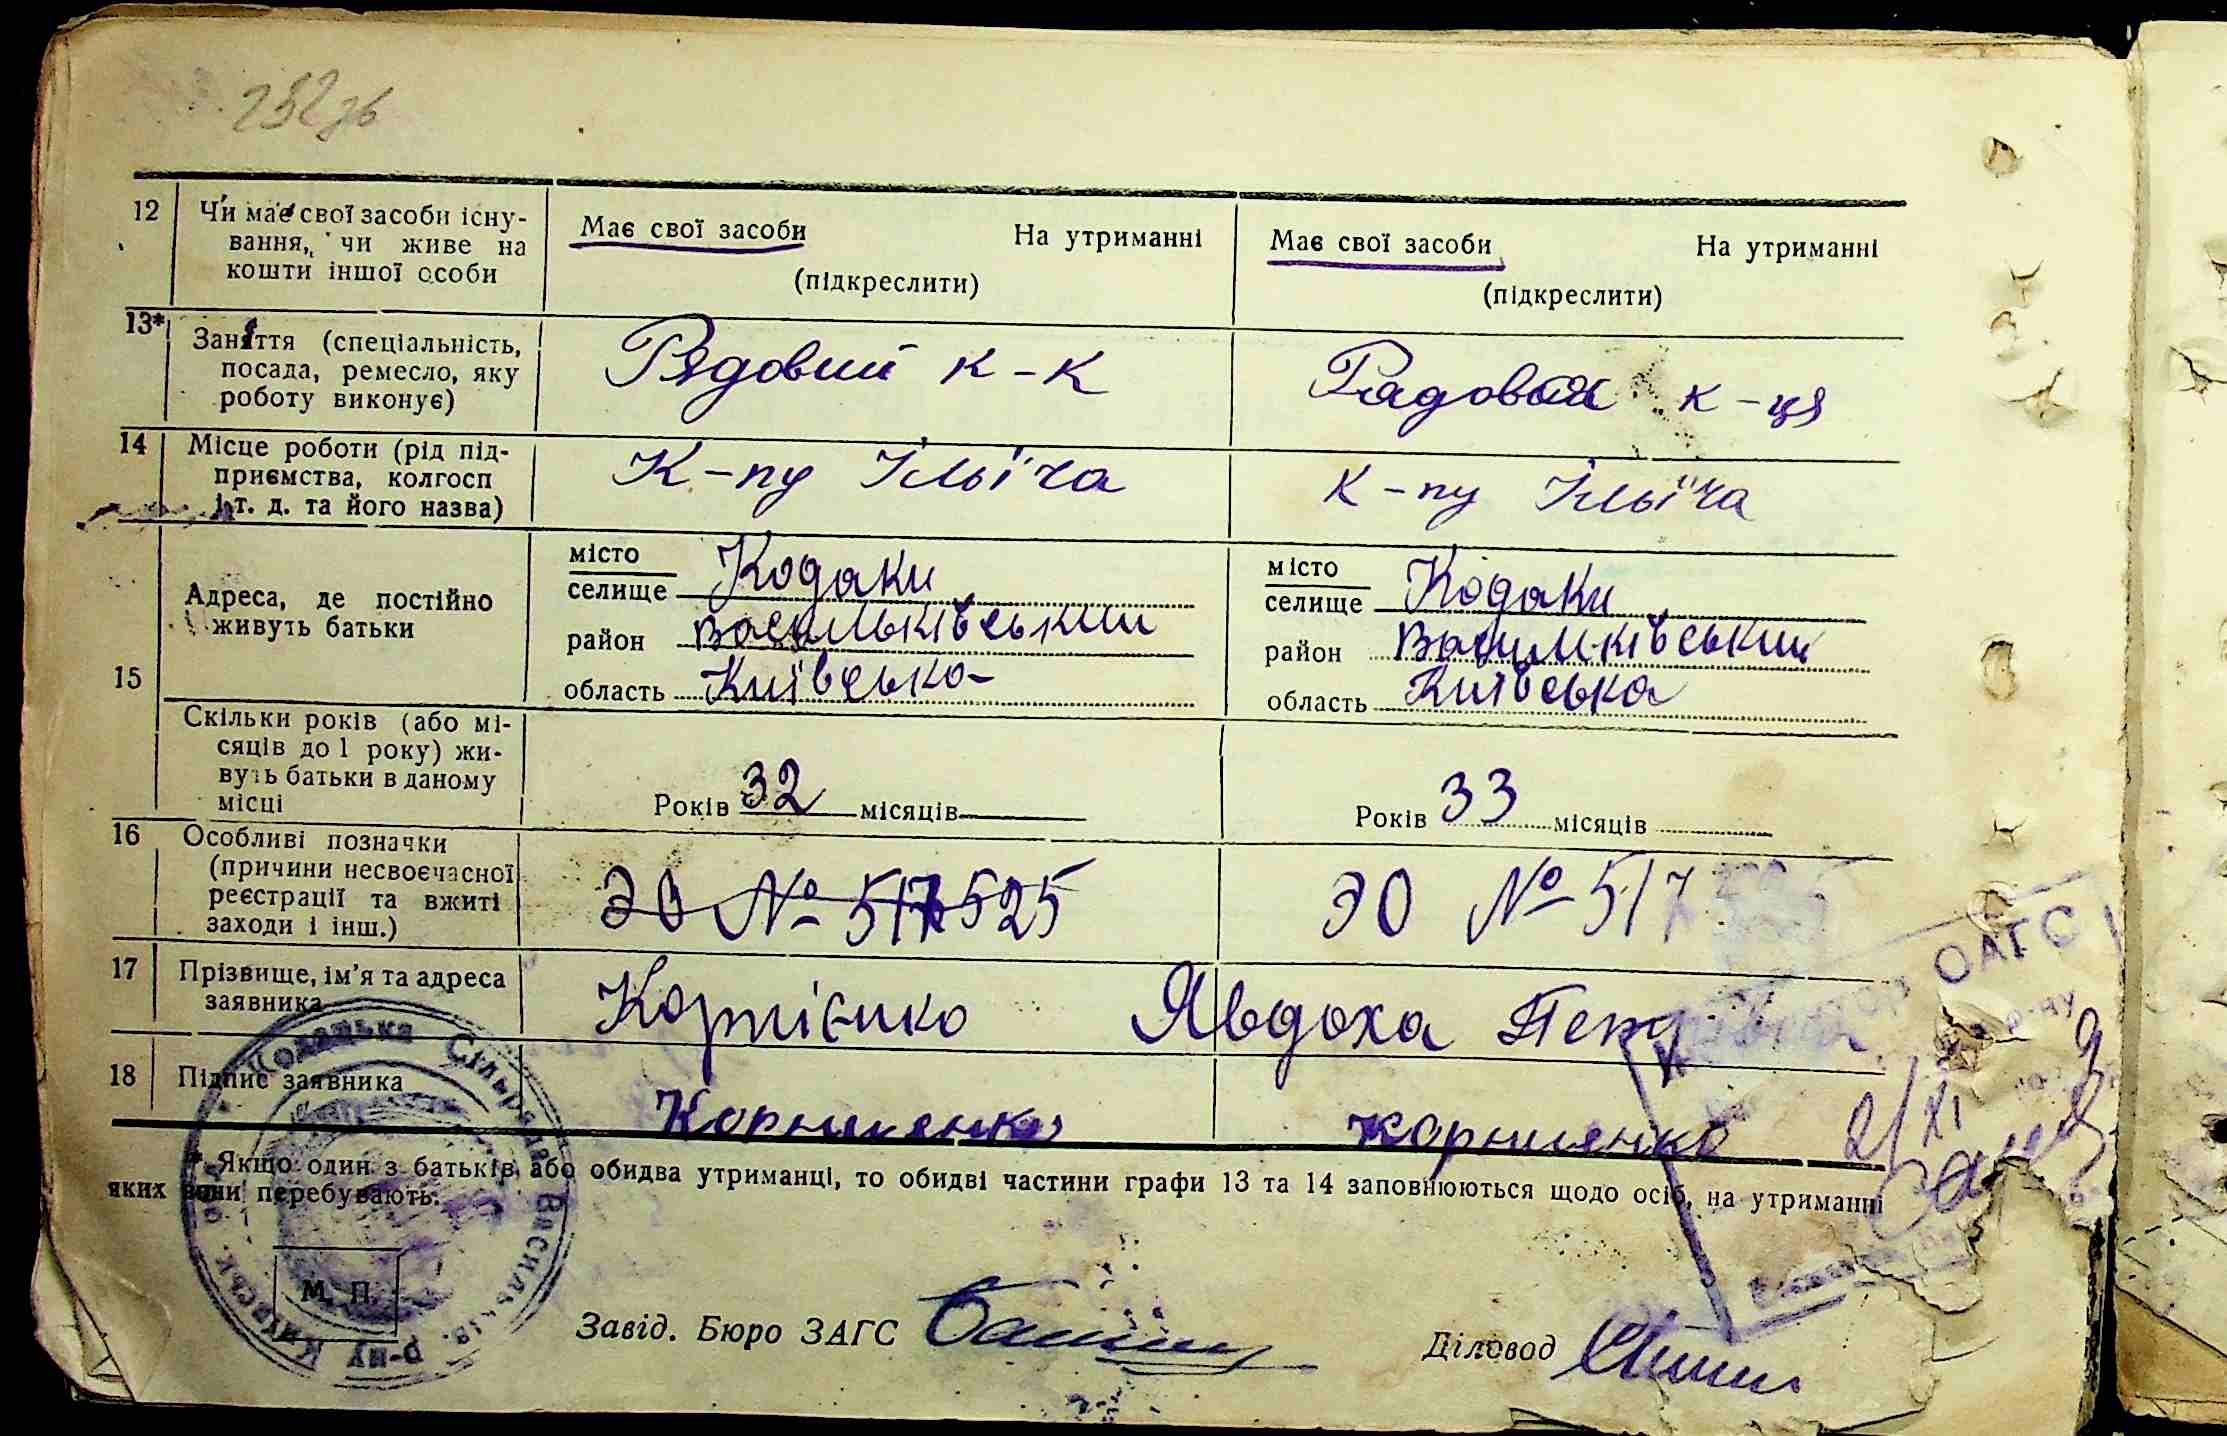 252зв
12 Чи має свої засоби існу-
вання, чи живе на
кошти іншої особи
Має свої засоби На утриманні
(підкреслити)
Має свої засоби На утриманні
(підкреслити)
13* Заняття (спеціальність,
посада, ремесло, яку
роботу виконує)
Рядовий к-к
Рядовая к-ця
14 Місце роботи (рід під-
приємства, колгосп
і т. д. та його назва)
К-пу Ільїча
К-пу Ільїча
15 Адреса, де постійно
живуть батьки
місто
селище Кодаки
район Васильківський
область Київська
місто
селище Кодаки
район Васильківський
область Київська
Скільки років (або мі-
сяців до 1 року) жи-
вуть батьки в даному
місці
Років 32 місяців
Років 33 місяців
16 Особливі позначки
(причини несвоєчасної
реєстрації та вжиті
заходи і інш.)
ЭО № 517525
ЭО № 517
17 Прізвище, ім'я та адреса
заявника
Корнієнко Явдоха Пет
18 Підпис заявника
Корниенко
Корниенко
* Якщо один з батьків або обидва утриманці, то обидві частини графи 13 та 14 заповнюються щодо осіб, на утриманні
яких вони перебувають.
Кодацька Сільрада Васильків. р-ну Київськ.
М. П.
Завід. Бюро ЗАГС
Діловод
ОАГС
р-ну
2/XI